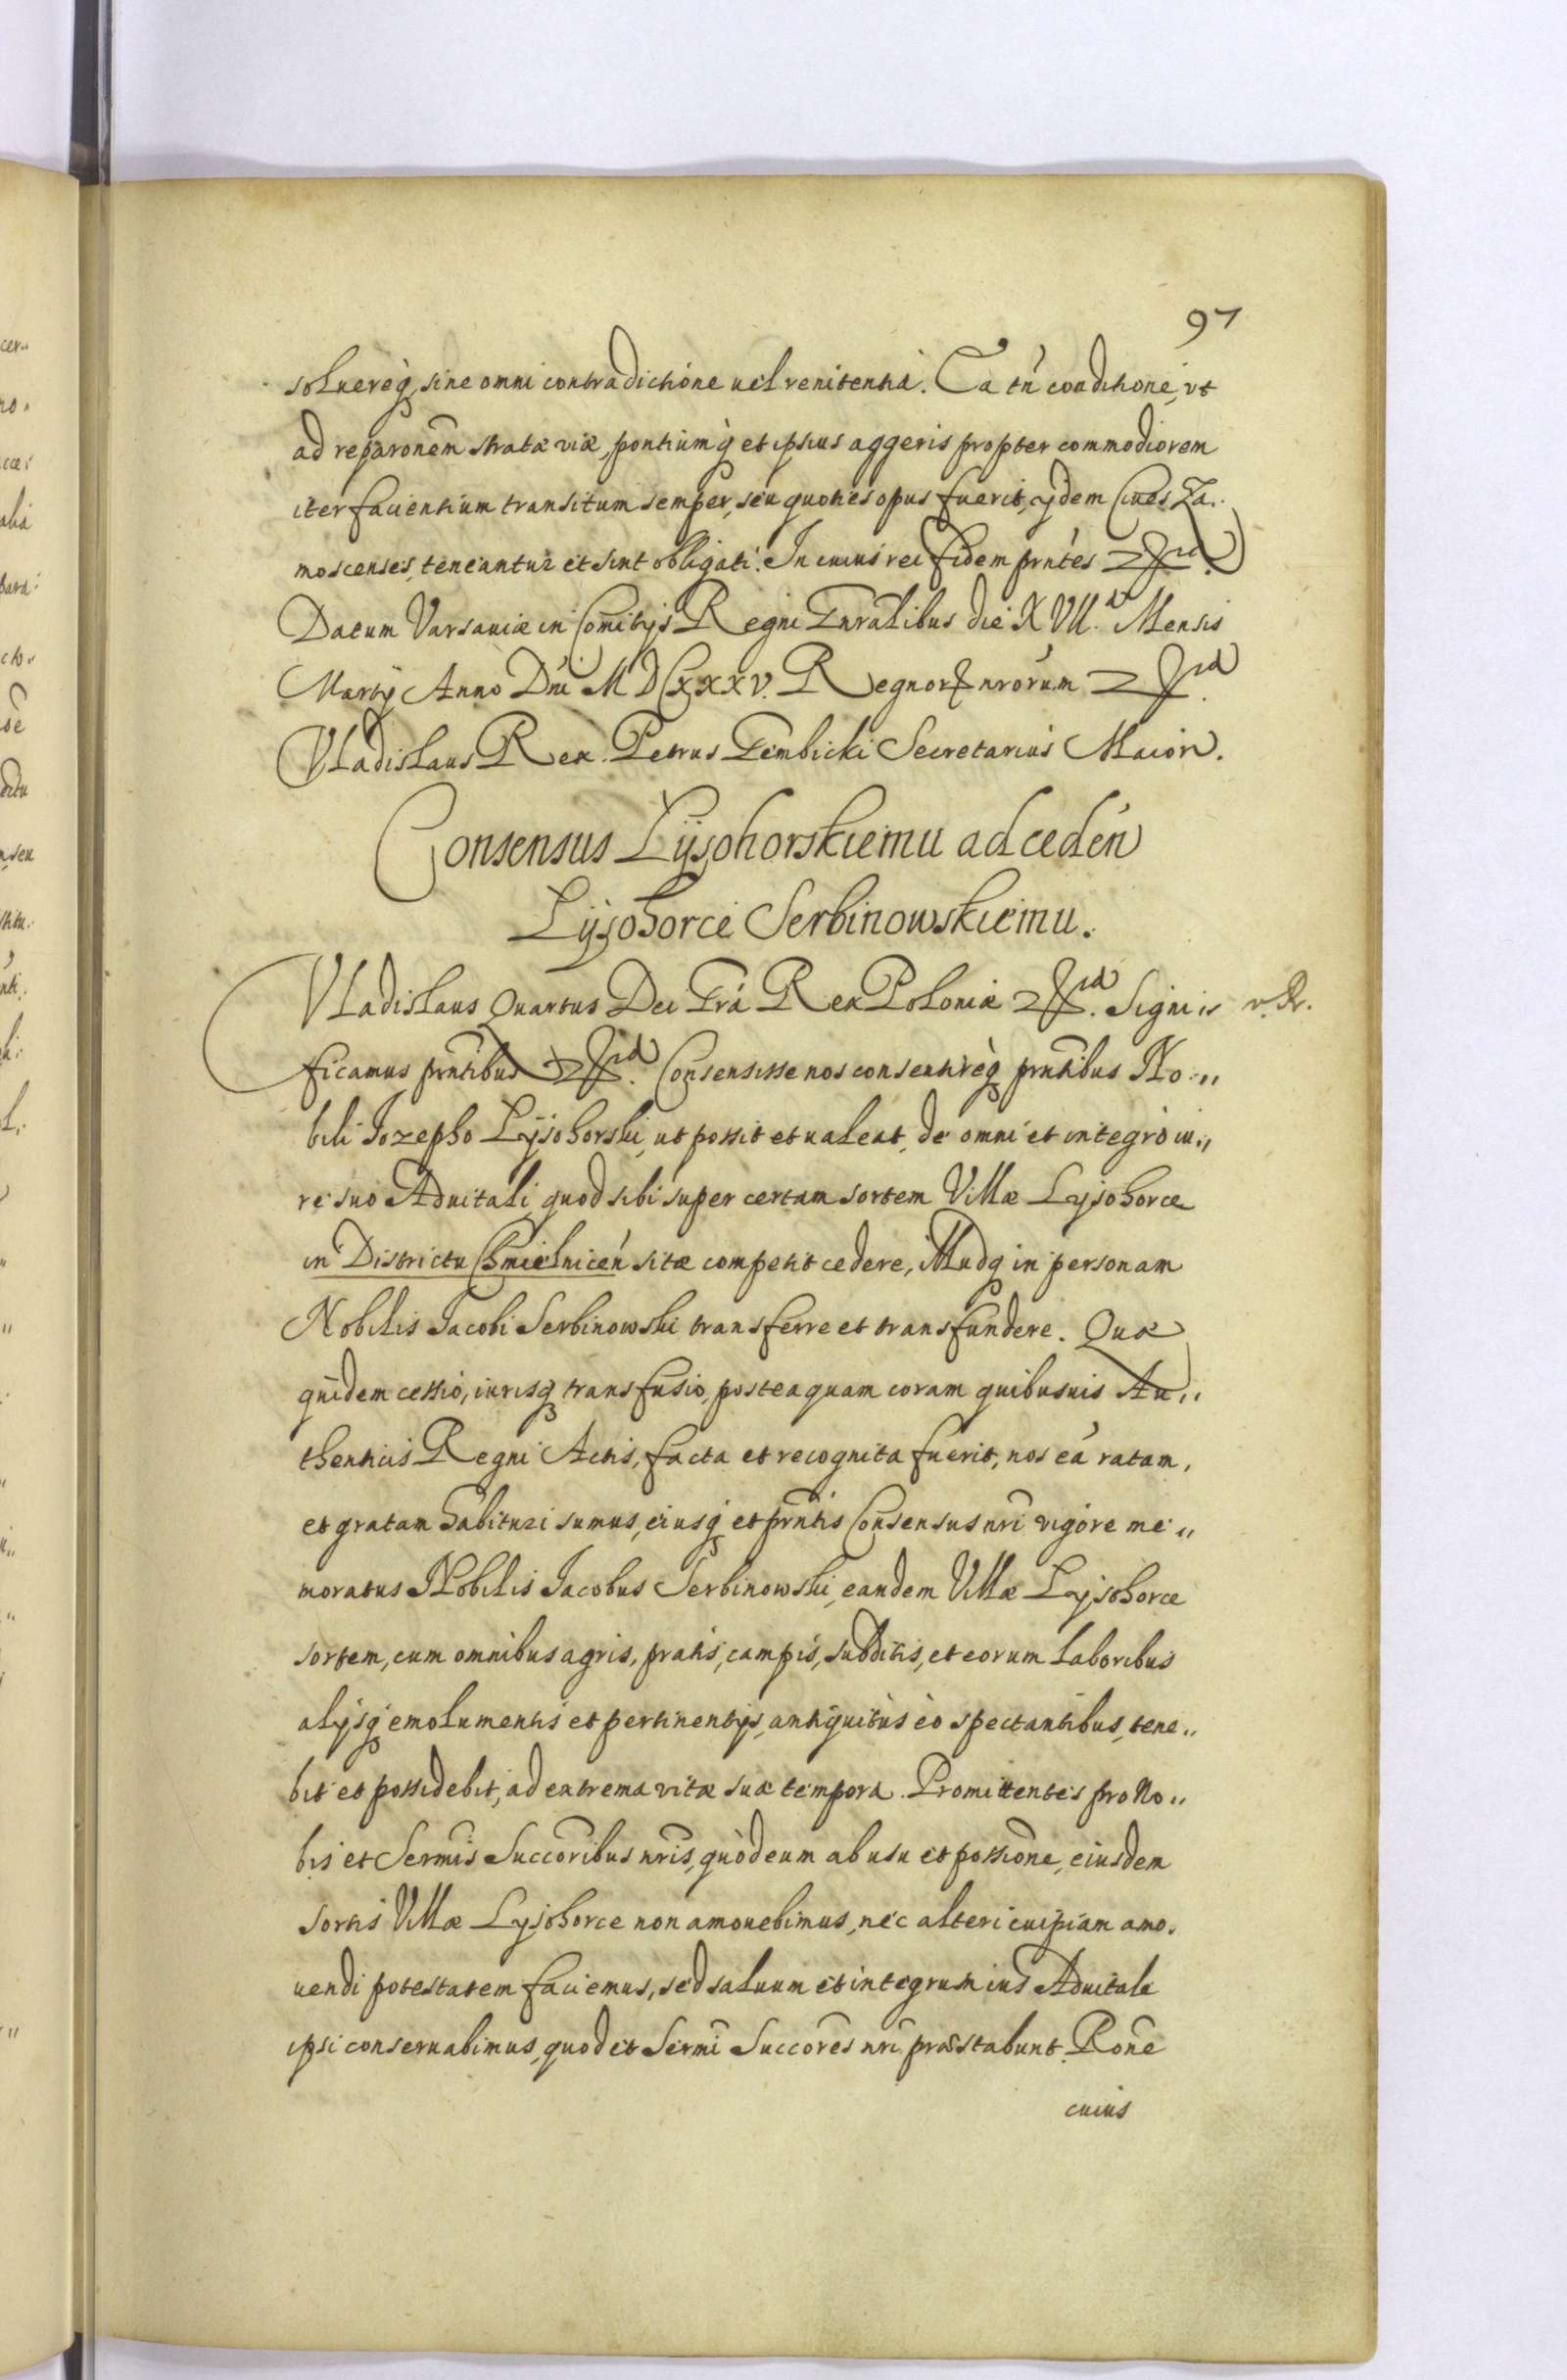 97
soluereq₃ sine omni contradictione uel renitentia. Ea tñ conditione, vt
ad reparonem stratæ viæ, pontiumq̀ et ipsius aggeris propter commodiorem
iter facientium transitum semper, seu quoties opus fuerit, ijdem Ciues Za..
moscenses, teneantur et sint obligati. In cuius rei fidem prntes
Datum Varsauiæ in Comitijs Regni Gnralibus die XVII.a Mensis
Martij Anno Dni MDCXXXV. Regnorz nrorum
Vladislaus Rex. Petrus Gembicki Secretarius Maior.
Consensus Lysohorskiemu ad ceden
Lysohorce Serbinowskiemu.
Vladislaus Quartus Dei Gra Rex Poloniæ Signi is v. R.
ficamus prntibus Consensisse nos consentireq₃ prntibus No..
bili Jozepho Lysohorski, ut possit et ualeat, de omni et integro iu..
re suo Aduitali, quod sibi super certam sortem Villæ Lysohorce
in Districtu Chmielnicen sitæ competit cedere, Illudq₃ in personam
Nobilis Jacobi Serbinowski transferre et transfundere. Quæ
quidem cessio, iurisq₃ transfusio, posteaquam coram quibusuis Au..
thenticis Regni Actis, facta et recognita fuerit, nos ea ratam,
et gratam habituri sumus, eiusq₃ et prntis Consensus nri vigore me..
moratus Nobilis Jacobus Serbinowski, eandem Villæ Lysohorce
sortem, cum omnibus agris, pratis, campis, subditis, et eorum laboribus
alijsq₃ emolumentis et pertinentijs, antiquitùs eò spectantibus, tene..
bit et possidebit, ad extrema vitæ suæ tempora. Promittentes pro No..
bis et Sermis Succoribus nris, quòd eum ab usu et possione, eiusdem
sortis Villæ Lysohorce non amouebimus, nec alteri cuipiam amo.
uendi potestatem faciemus, sed saluum et integrum ius Aduitale
ipsi conseruabimus, quod et Sermi Succores nri præstabunt. Rone
cuius